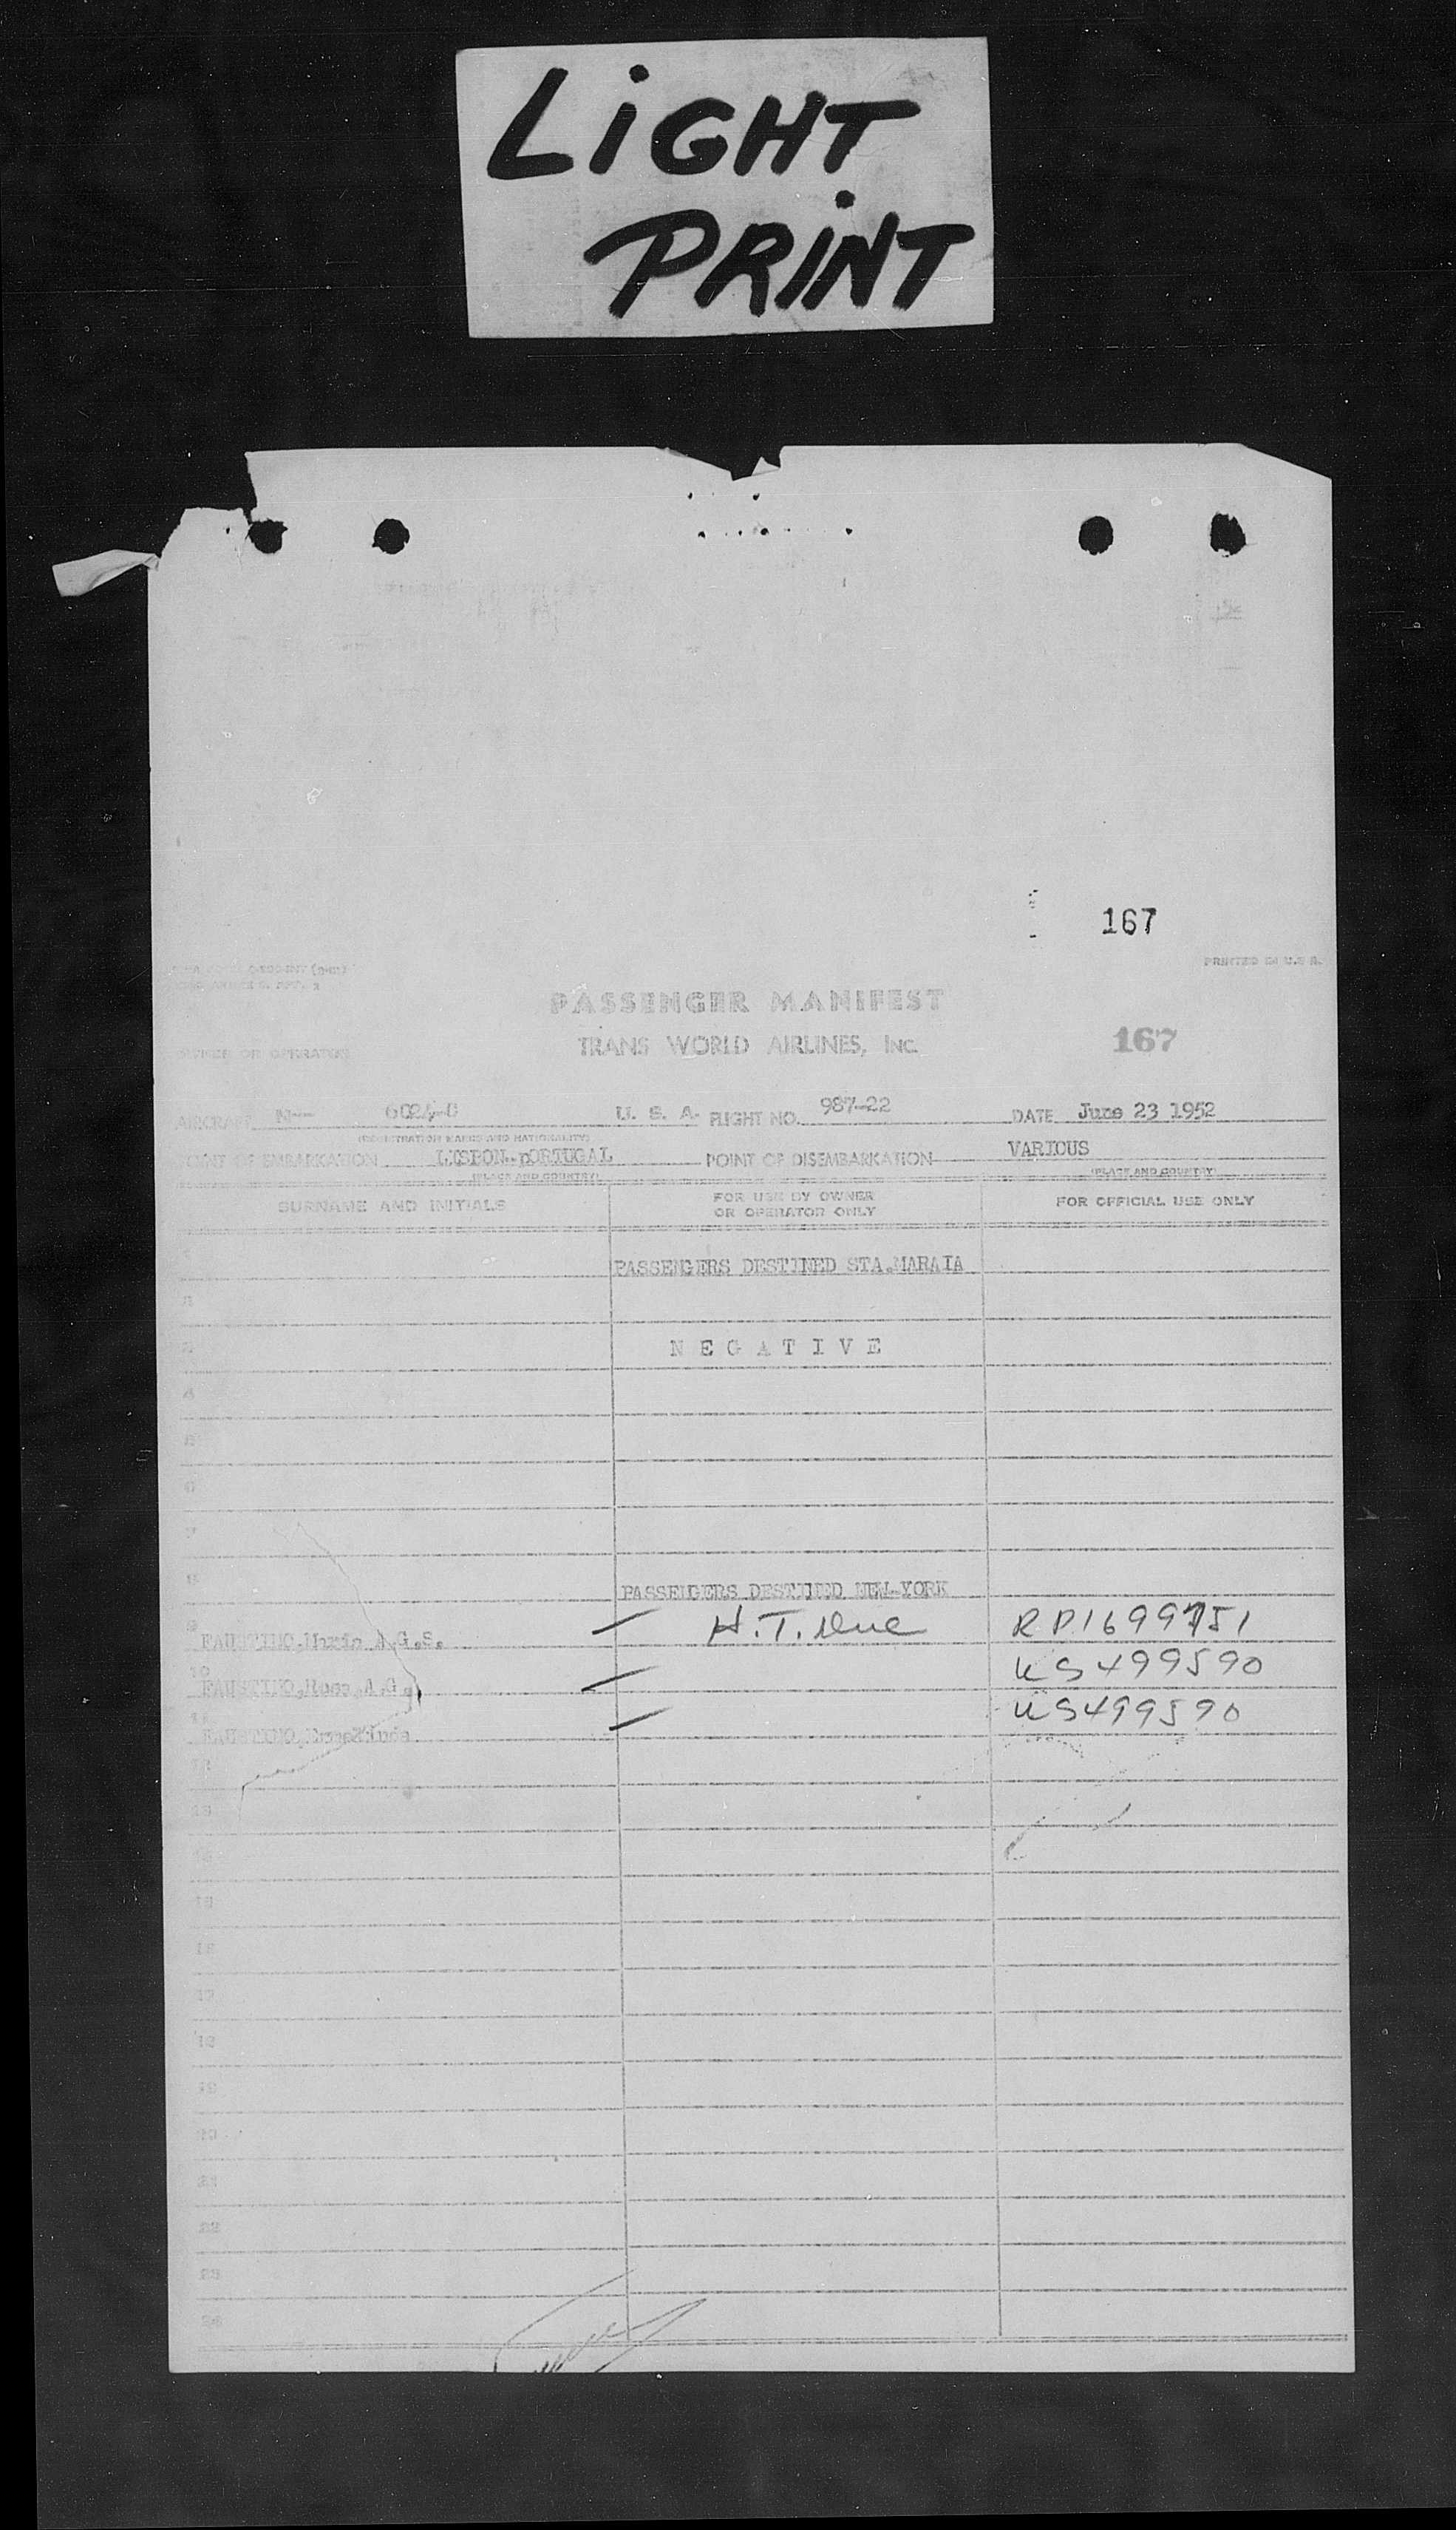 LiGHT
PRiNT
167
PRINTED IN U.S.A.
PASSENGER MANIFEST
TRANS WORLD AIRLINES, INC.
167
OWNER OR OPERATOR
AIRCRAFT N-- 6024-C U. S. A. FLIGHT NO. 987-22 DATE June 23 1952
(REGISTRATION MARKS AND NATIONALITY)
POINT OF EMBARKATION LISBON-pORTUGAL POINT OF DISEMBARKATION VARIOUS
(PLACE AND COUNTRY) (PLACE AND COUNTRY)
SURNAME AND INITIALS FOR USE BY OWNER OR OPERATOR ONLY FOR OFFICIAL USE ONLY
PASSENGERS DESTINED STA.MARAIA
N E G A T I V E
4
7
PASSENGERS DESTINED NEW-YORK
9 FAUSTINO,Maria A.G.S. H.T. RP1699751
10 FAUSTINO,Rosa A.G. US499590
11 FAUSTINO, US499590
12
13
14
15
16
17
18
19
20
21
22
23
24